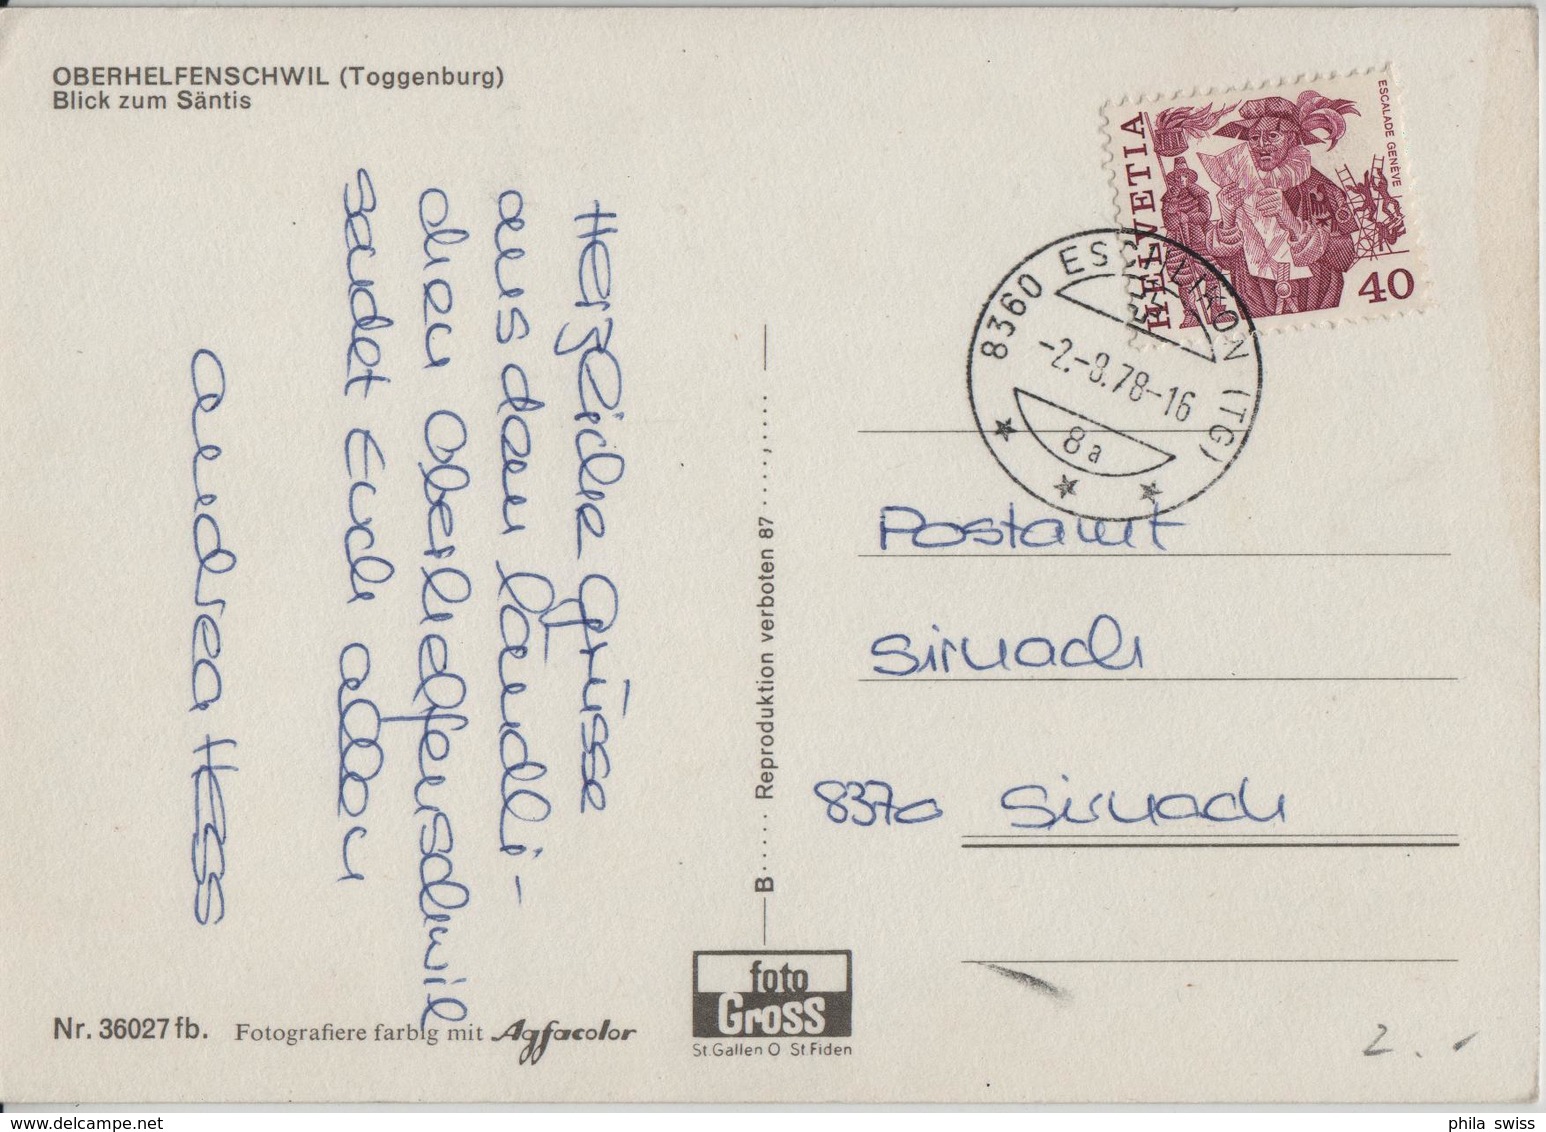 OBERHELFENSCHWIL (Toggenburg)
Blick zum Säntis
Herzliche Grüsse
aus dem ländli-
chen Oberhelfenschwil
sendet Euch allen
Andrea Hess
Nr. 36027 fb. Fotografiere farbig mit Agfacolor
B..... Reproduktion verboten 87 .....,....
foto
Gross
St.Gallen O St.Fiden
HELVETIA
ESCALADE GENÈVE
40
8360 ESCHLIKON (TG)
-2.-8.78-16
8a
Postamt
Sirnach
8370 Sirnach
2.-
phila swiss